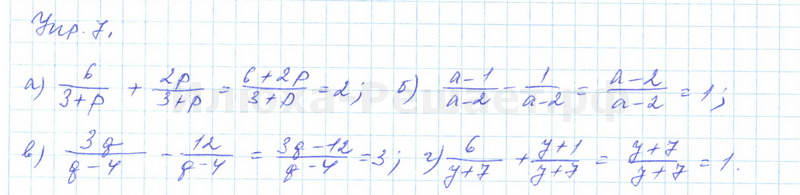 Упр. 7.
а) 6/(3+p) + 2p/(3+p) = (6+2p)/(3+p) = 2; б) (a-1)/(a-2) - 1/(a-2) = (a-2)/(a-2) = 1;
в) 3q/(q-4) - 12/(q-4) = (3q-12)/(q-4) = 3; г) 6/(y+7) + (y+1)/(y+7) = (y+7)/(y+7) = 1.